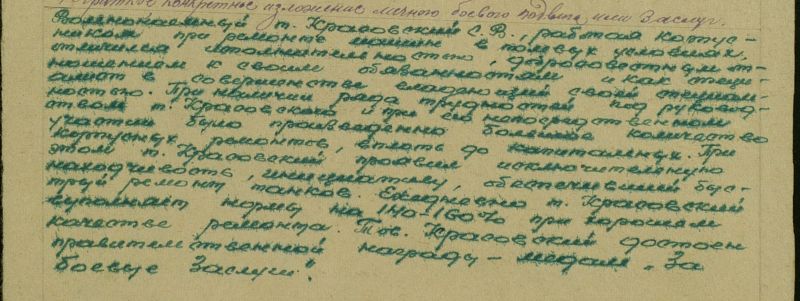 Краткое конкретное изложение личного боевого подвига или заслуг.
Вольнонаемный т. Красовский С.В., работая корпус-
ником при ремонте машин в полевых условиях,
отличился исполнительностью, добросовестным от-
ношением к своим обязанностям и как специ-
алист в совершенстве владеющий своей специаль-
ностью. При наличии ряда трудностей под руковод-
ством т. Красовского и при его непосредственном
участии было произведенно большое количество
корпусных ремонтов, вплоть до капитальных. При
этом т. Красовский проявил исключительную
находчивость, инициативу, обеспечивший быс-
трый ремонт танков. Ежедневно т. Красовский
выполняет норму на 140-160% при хорошем
качестве ремонта. Тов. Красовский достоен
правительственной награды - медали „За
боевые Заслуги".